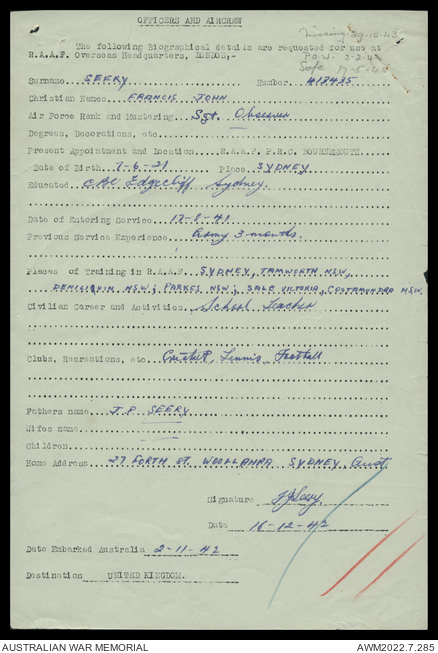 OFFICERS AND AIRCREW
Missing 29-10-43
The following Biographical details are requested for use at
R.A.A.F. Overseas Headquarters, LONDON,-
P.O.W. 2-2-44
Safe 17-5-45
Surname SEERY Number 413435
Christian Names FRANCIS JOHN
Air Force Rank and Mustering Sgt. Observer
Degrees, Decorations, etc
Present Appointment and Location R.A.A.F. P.R.C. BOURNEMOUTH
Date of Birth 7-6-21 Place SYDNEY
Educated Edgecliff Sydney.
Date of Entering Service 17-8-41
Previous Service Experience Army 3 months.
Places of Training in R.A.A.F. SYDNEY, TAMWORTH NSW,
DENILIQUIN NSW; PARKES NSW; SALE VICTORIA, COOTAMUNDRA NSW.
Civilian Career and Activities School Teacher
Clubs, Recreations, etc Cricket, Tennis Football
Fathers name J.P. SEERY
Wifes name
Children
Home Address 27 FORTH ST. WOOLLAHRA SYDNEY, Aust.
Signature FJSeery
Date 16-12-42
Date Embarked Australia 2-11-42
Destination UNITED KINGDOM.
AUSTRALIAN WAR MEMORIAL AWM2022.7.285